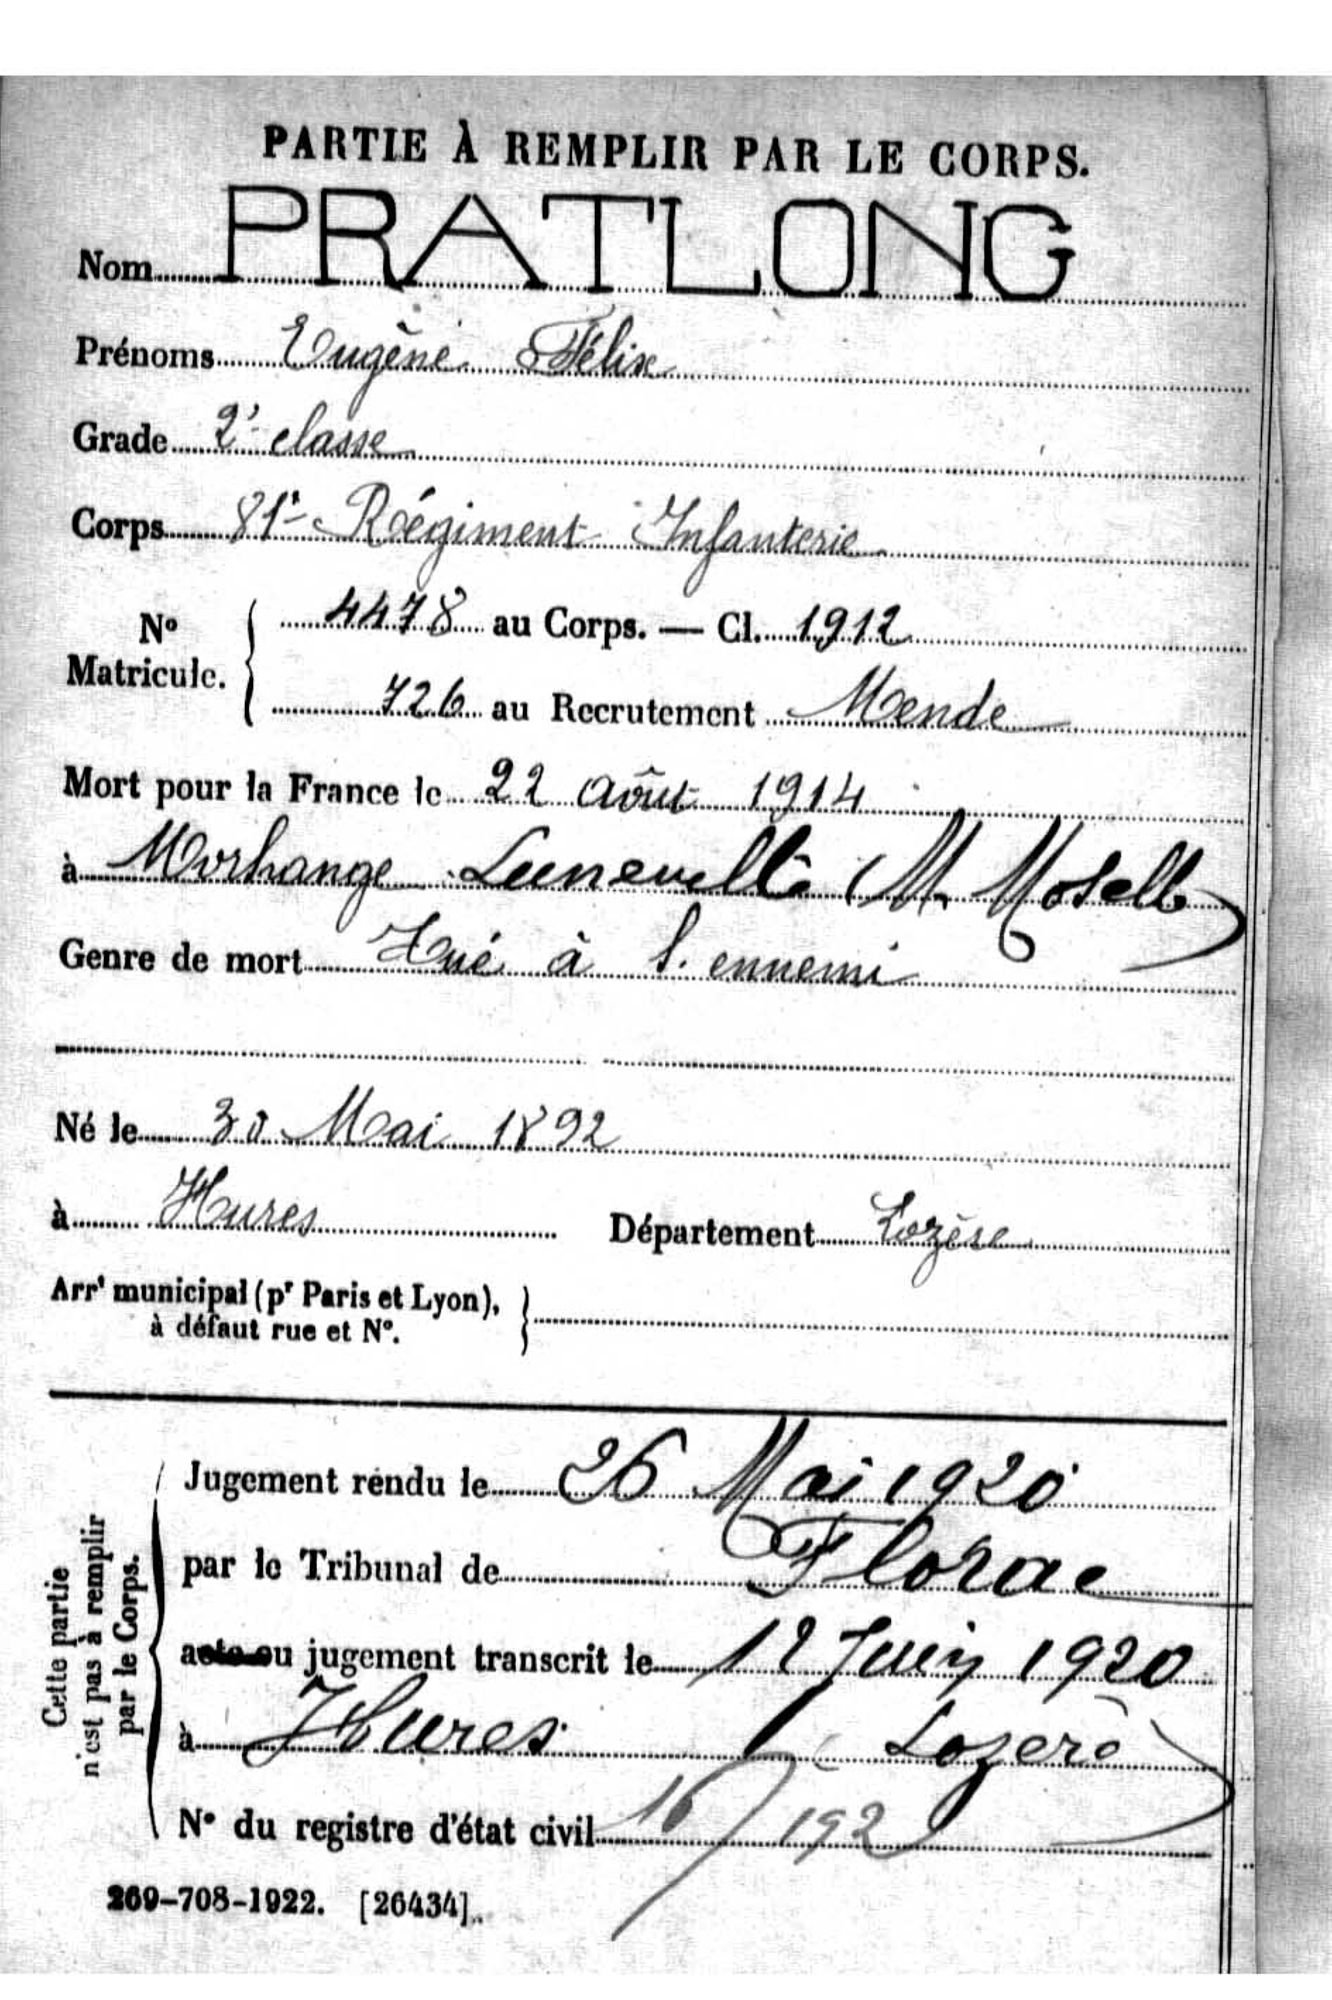 PARTIE À REMPLIR PAR LE CORPS.
Nom PRATLONG
Prénoms Eugène Félix
Grade 2e classe
Corps 81e Régiment Infanterie
No Matricule. 4478 au Corps. — Cl. 1912
726 au Recrutement Mende
Mort pour la France le 22 Août 1914
à Morhange Luneville (M. Moselle)
Genre de mort Tué à l'ennemi
Né le 30 Mai 1892
à Hures Département Lozère
Arrt municipal (pr Paris et Lyon),
à défaut rue et No.
Cette partie
n'est pas à remplir
par le Corps.
Jugement rendu le 26 Mai 1920
par le Tribunal de Florac
acte ou jugement transcrit le 12 Juin 1920
à Hures (Lozère)
No du registre d'état civil 16/192
269-708-1922. [26434].